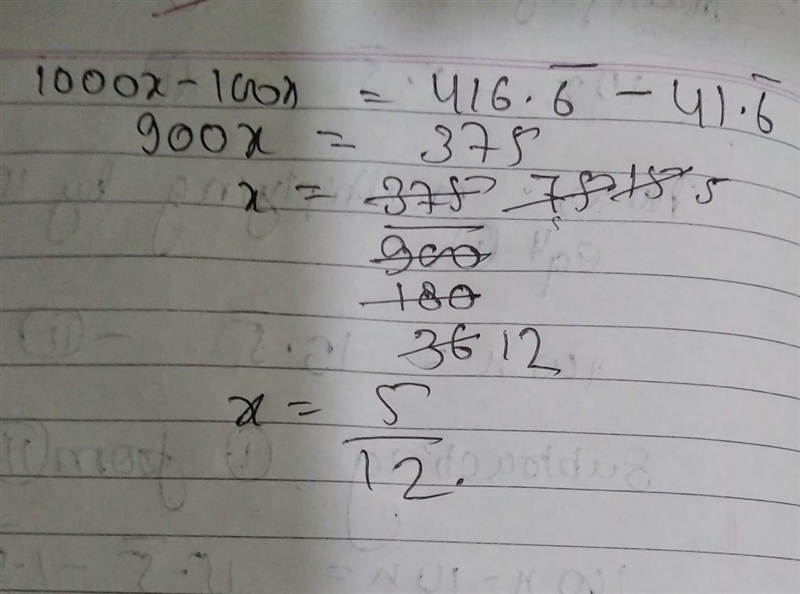 1000x - 100x = 416.6̅ - 41.6̅
900x = 375
x = 375 75 15 5
900
180
36 12
x = 5
12.